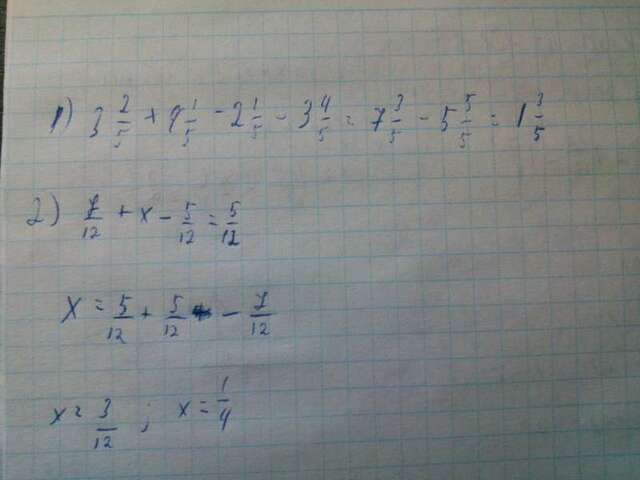 1) 3 2/5 + 4 1/5 - 2 1/5 - 3 4/5 = 7 3/5 - 5 5/5 = 1 3/5
2) 7/12 + x - 5/12 = 5/12
x = 5/12 + 5/12 - 7/12
x = 3/12 ; x = 1/4